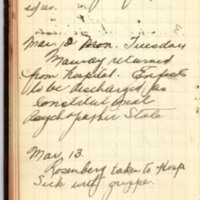 Mar. 2 Mon. Tuesday
Mauray returned
from hospital. Expects
to be discharged for
Constitutional
Psychopathic State
Mar. 13.
Rosenberg taken to Hosp
Sick with grippe.